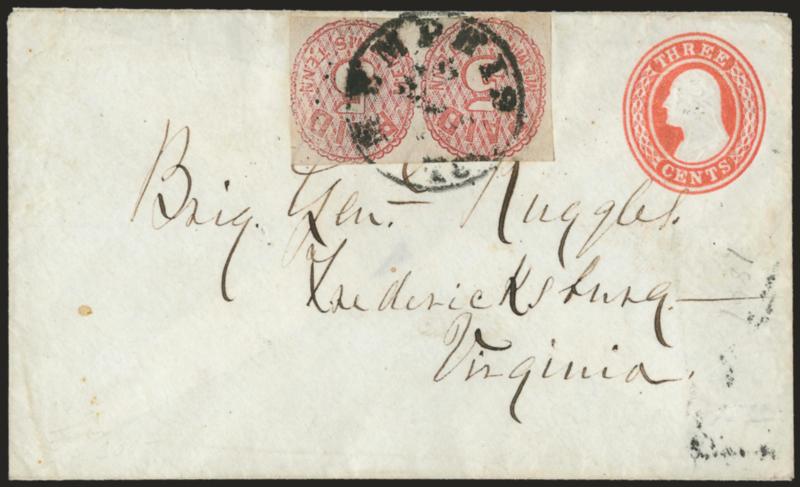 PAID
5
MEMPHIS, TENN.
PAID
5
MEMPHIS
THREE
CENTS
Brig. Gen. Ruggles.
Fredericksburg
Virginia.